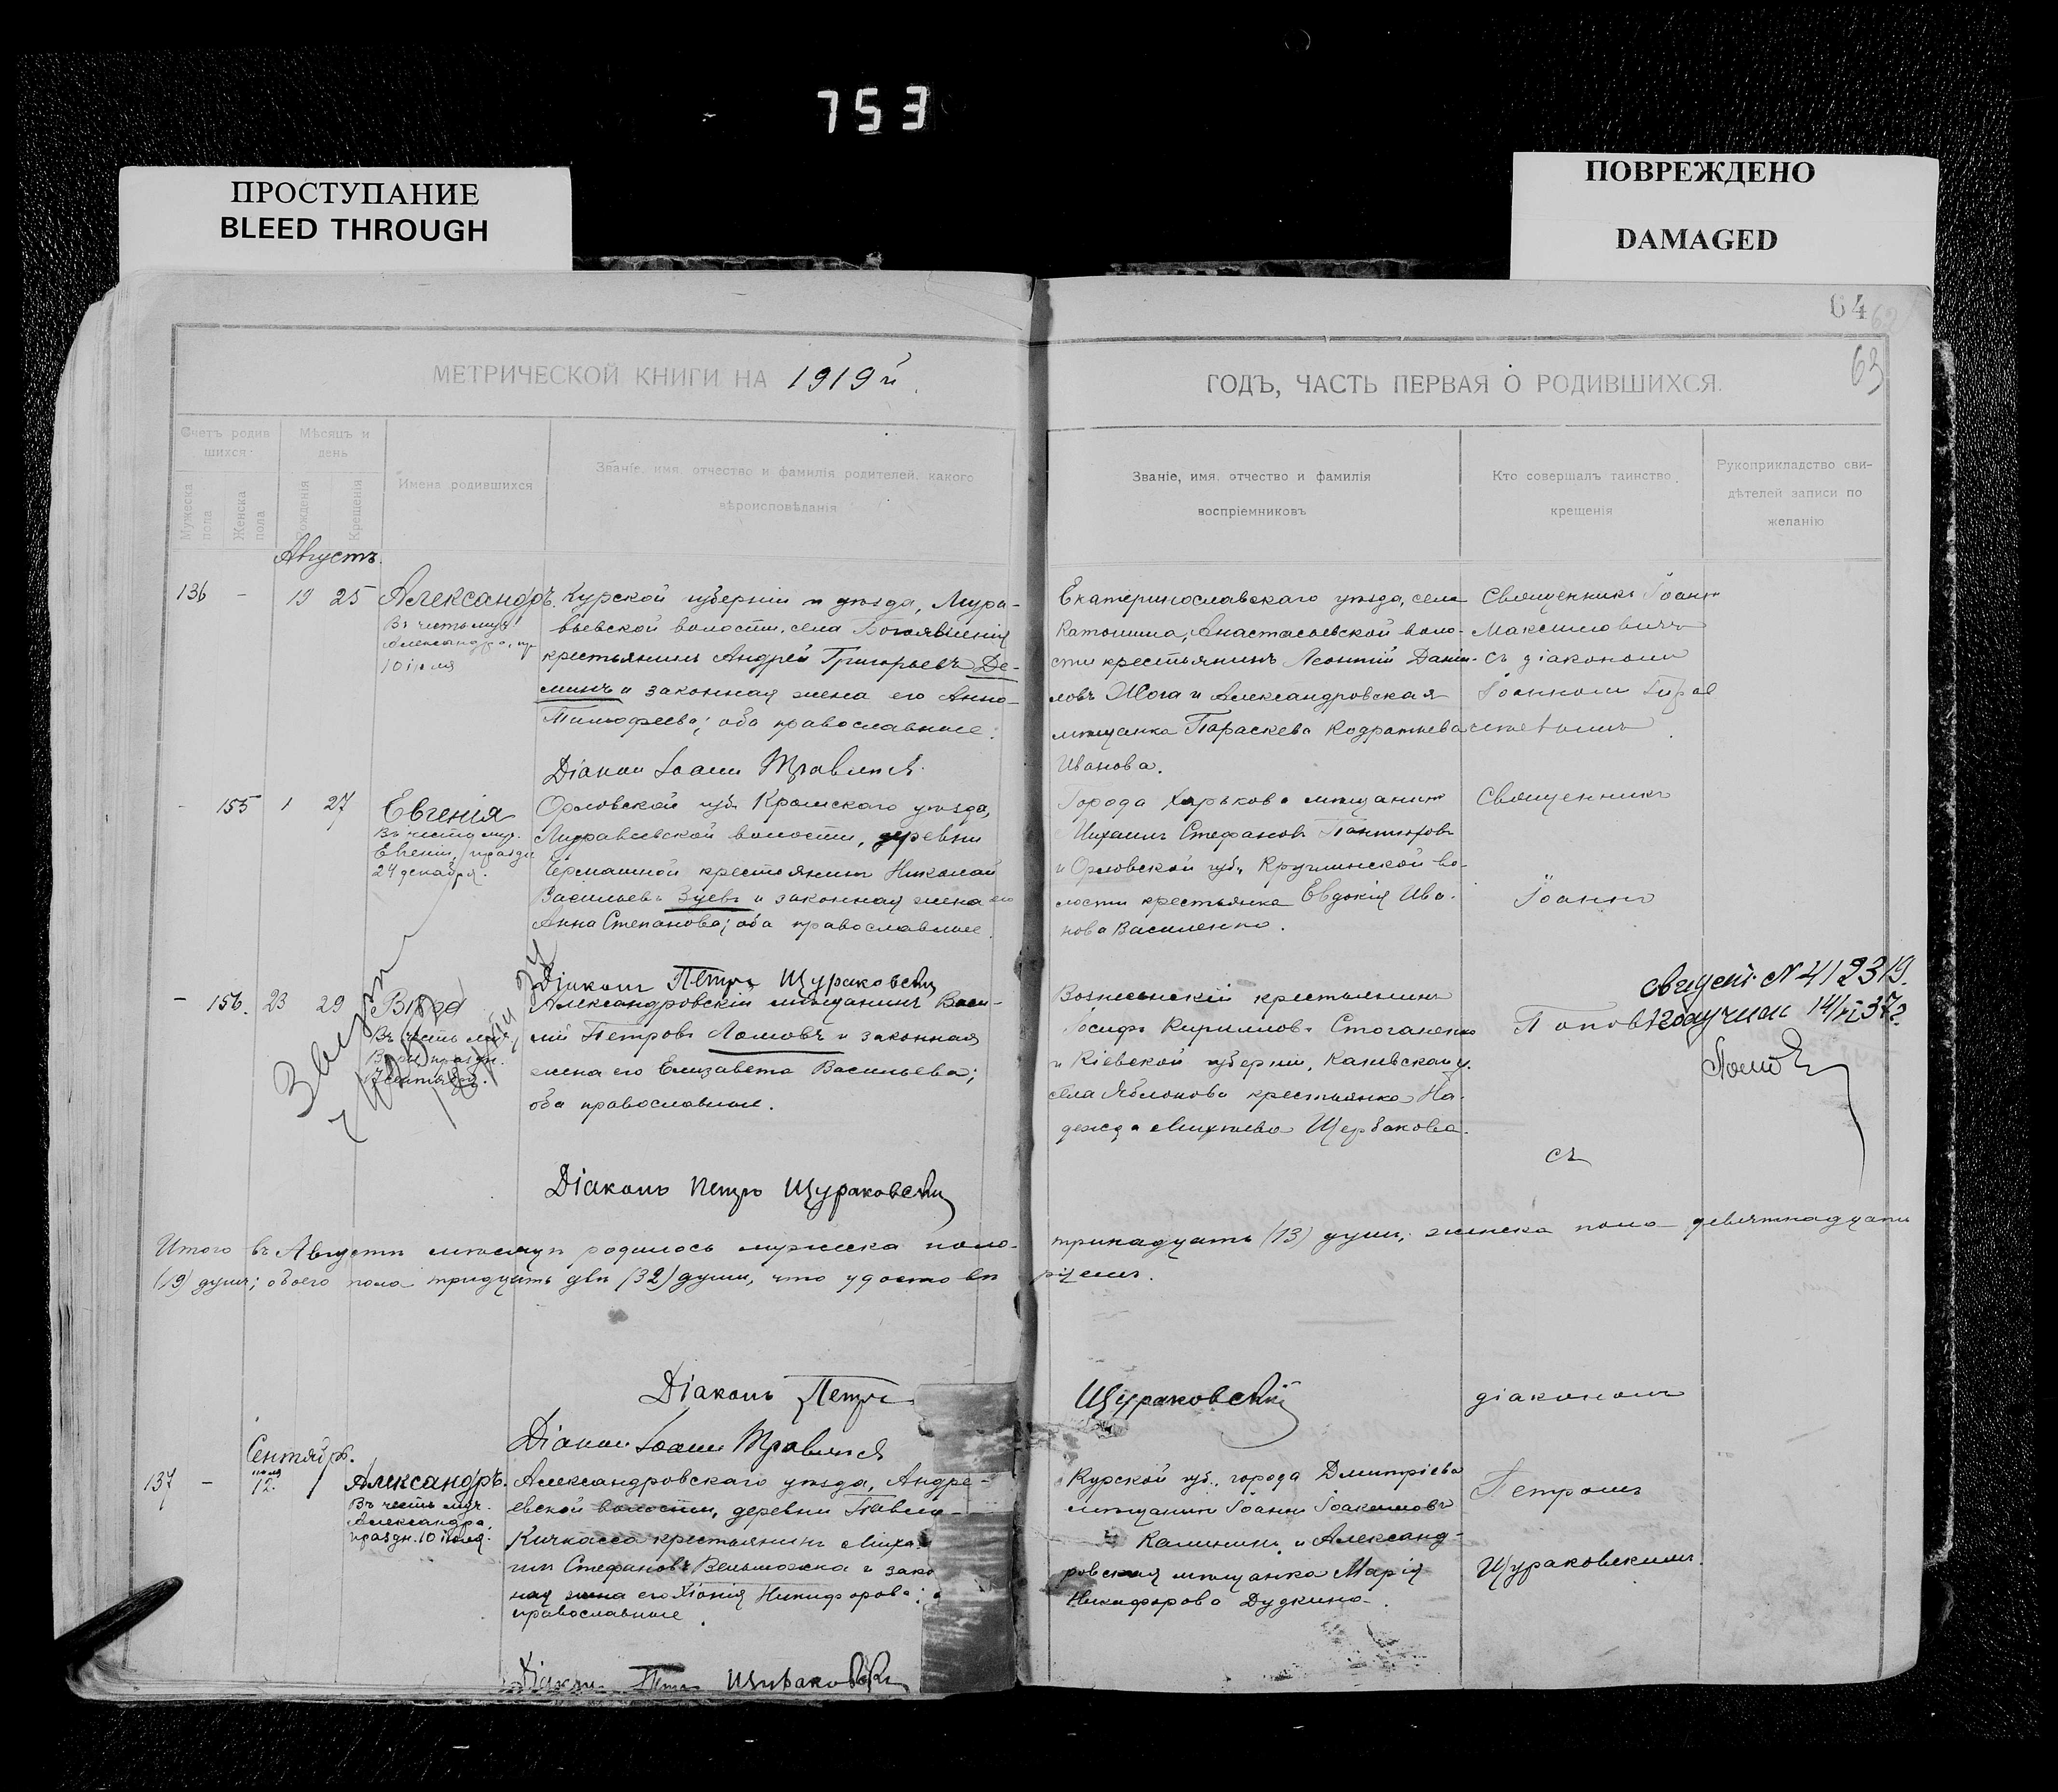 753
ПРОСТУПАНИЕ
BLEED THROUGH
ПОВРЕЖДЕНО
DAMAGED
64
63
МЕТРИЧЕСКОЙ КНИГИ НА 1919 й
ГОДЪ, ЧАСТЬ ПЕРВАЯ О РОДИВШИХСЯ.
Счетъ родив
шихся
Мужеска пола
Женска пола
Мѣсяцъ и
день
Рожденія
Крещенія
Имена родившихся
Званіе, имя, отчество и фамилія родителей, какого
вѣроисповѣданія
Званіе, имя, отчество и фамилія
воспріемниковъ
Кто совершалъ таинство
крещенія
Рукоприкладство сви-
дѣтелей записи по
желанію
Августъ.
136 - 19 25 Александръ.
Въ честь муч.
Александра, пр.
10 іюля
Курской губерніи и уѣзда, Мура-
вьевской волости, села Богоявленія
крестьянинъ Андрей Григорьевъ Де-
минъ и законная жена его Анна
Тимофеева; оба православные.
Діаконъ Іоаннъ
Екатеринославскаго уѣзда, села
Анастасьевской воло-
сти крестьянинъ Леонтій Даніи-
ловъ Жога и Александровская
мѣщанка Параскева Кодратьева
Иванова.
Священникъ Іоаннъ
Максимовичъ
съ діакономъ
Іоанномъ
- 155 1 27 Евгенія
Въ честь муч.
Евгеніи, праздн.
24 декабря.
Орловской губ. Кромскаго уѣзда,
волости, деревни
крестьянинъ Николай
Васильевъ Зуевъ и законная жена его
Анна Степанова; оба православные.
Діаконъ Петръ Щураковскій
Города Харькова мѣщанинъ
Михаилъ Стефановъ Пантюховъ
и Орловской губ. во-
лости крестьянка Евдокія Ива-
нова Василенко.
Священникъ
Іоаннъ
Поповъ
съ
діакономъ
Петромъ
Щураковскимъ.
- 156. 23 29 Вѣра
Въ честь муч.
Вѣры праздн.
17 сентября.
Александровскій мѣщанинъ Васи-
лій Петровъ Ломовъ и законная
жена его Елизавета Васильева;
оба православные.
Діаконъ Петръ Щураковскій
Вознесенскій крестьянинъ
Іосифъ Кирилловъ Стоганенко
и Кіевской губерніи, Каневскаго у.
села Яблонова крестьянка На-
дежда Михеева Щербакова.
свидет. N 412319.
получил 14/VI 37 г.
Итого въ Августѣ мѣсяцѣ родилось мужеска пола
тринадцать (13) душъ, женска пола девятнадцать
(19) душъ; обоего пола тридцать двѣ (32) души, что удостовѣ
ряемъ.
Діаконъ Петръ
Щураковскій
Діаконъ Іоаннъ
Сентябрь.
137 - 12. 1 Александръ.
Въ честь муч.
Александра,
праздн. 10 іюля.
Александровскаго уѣзда, Андре-
евской волости, деревни Павло-
Кичкасса крестьянинъ Миха
илъ Стефановъ Вельможка и зако
ная жена его Хіонія Никифорова;
православные.
Діаконъ Петръ Щураковскій
Курской губ., города Дмитріева
мѣщанинъ Іоаннъ Іоакимовъ
Калининъ и Александ-
ровская мѣщанка Марія
Никифорова Дудкина.